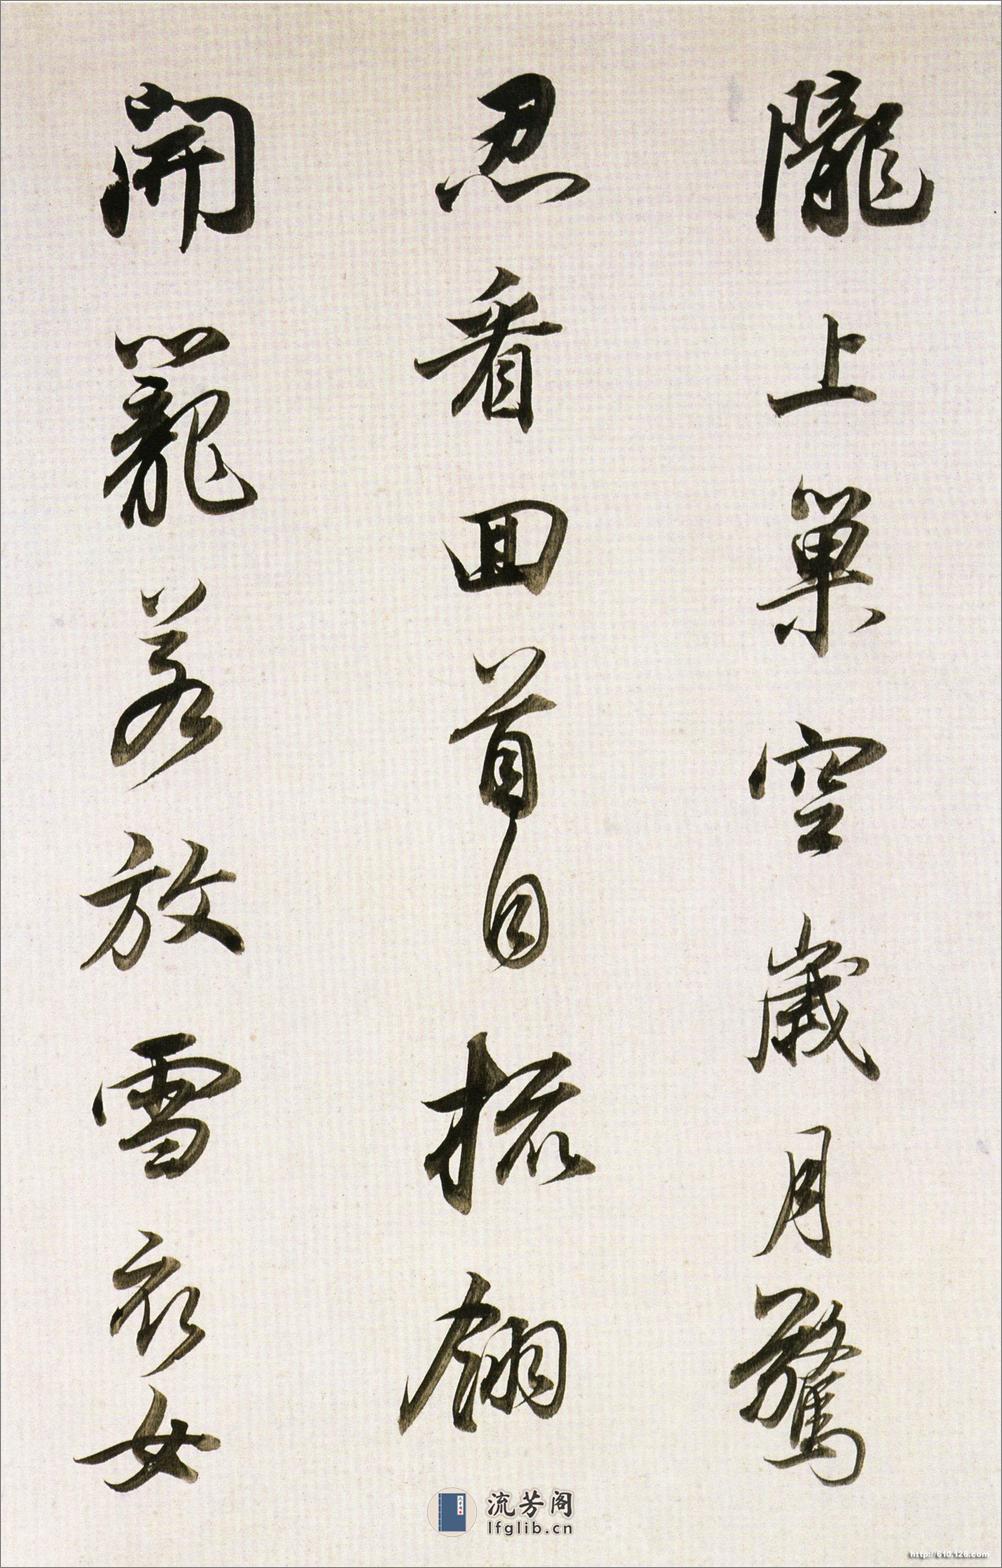 隴上巢空歲月驚
忍看回首自梳翎
開籠若放雪衣女
流芳阁
lfglib.cn